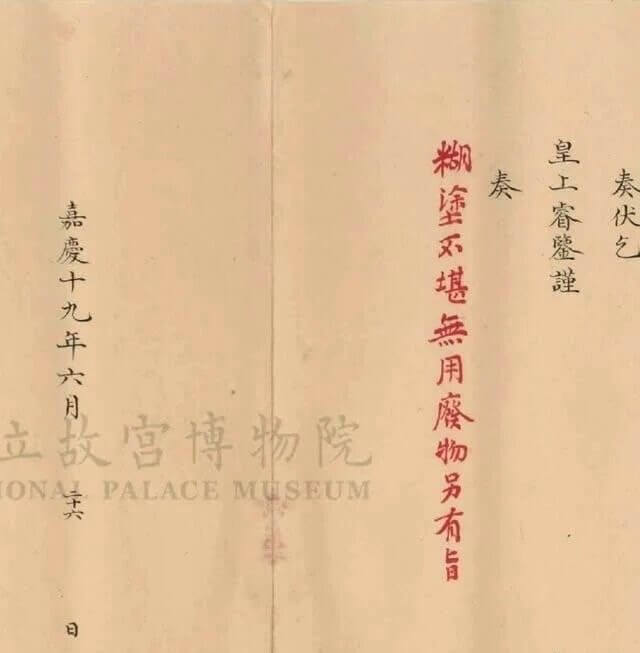 奏伏乞
皇上睿鑒謹
奏
糊塗不堪無用廢物另有旨
嘉慶十九年六月 二十六 日
立故宮博物院
IONAL PALACE MUSEUM